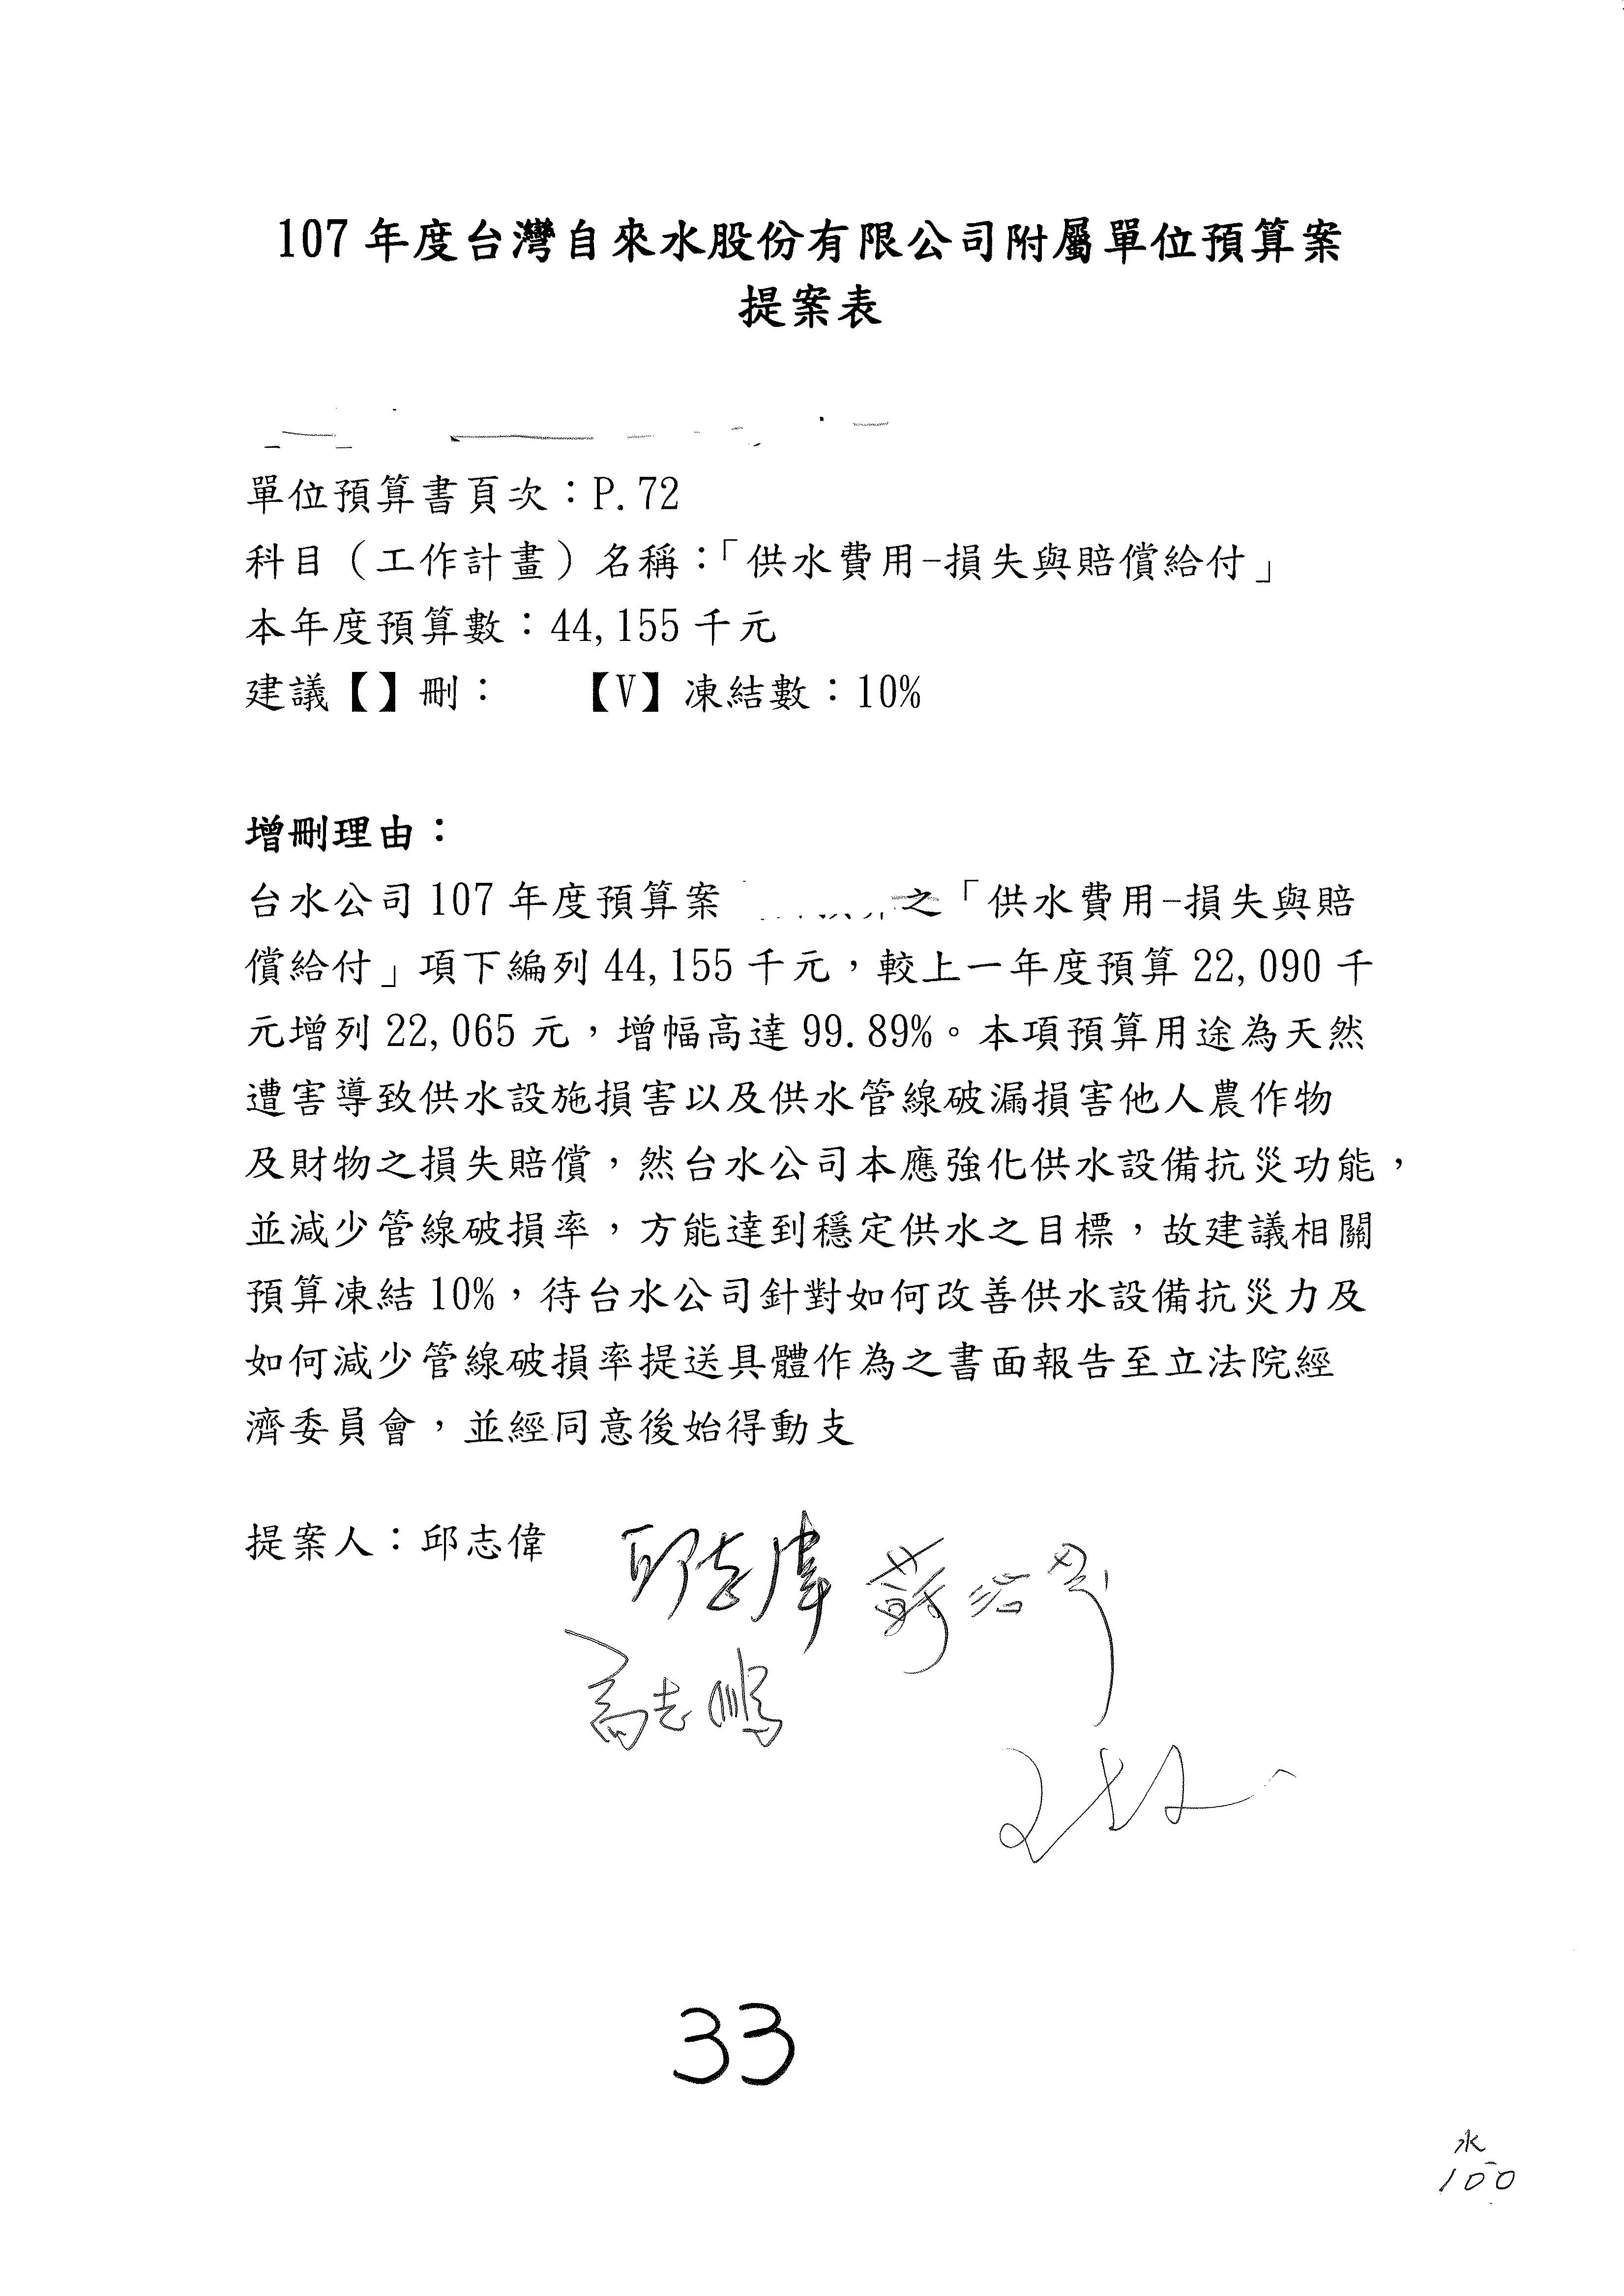 107 年度台灣自來水股份有限公司附屬單位預算案
提案表
單位預算書頁次：P.72
科目（工作計畫）名稱：「供水費用-損失與賠償給付」
本年度預算數：44,155 千元
建議【】刪：　　【V】凍結數：10%
增刪理由：
台水公司 107 年度預算案 之「供水費用-損失與賠
償給付」項下編列 44,155 千元，較上一年度預算 22,090 千
元增列 22,065 元，增幅高達 99.89%。本項預算用途為天然
遭害導致供水設施損害以及供水管線破漏損害他人農作物
及財物之損失賠償，然台水公司本應強化供水設備抗災功能，
並減少管線破損率，方能達到穩定供水之目標，故建議相關
預算凍結 10%，待台水公司針對如何改善供水設備抗災力及
如何減少管線破損率提送具體作為之書面報告至立法院經
濟委員會，並經同意後始得動支
提案人：邱志偉 邱志偉 蘇治芬
高志鵬
33
水
100